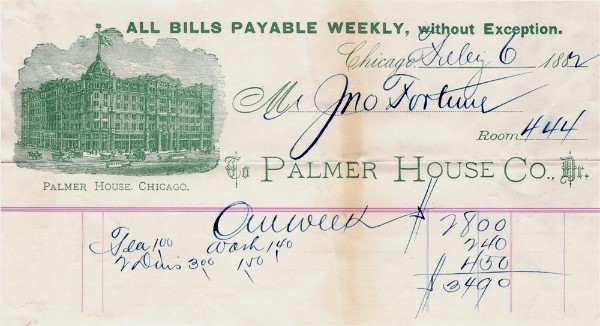 ALL BILLS PAYABLE WEEKLY, without Exception.
Chicago, July 6 1882
Mr Jno Fortune
Room 444
To PALMER HOUSE Co., Dr.
PALMER HOUSE, CHICAGO.
One week $ 2800
Tea 100 Wash 140 240
2 Dins 300 150 450
$3490